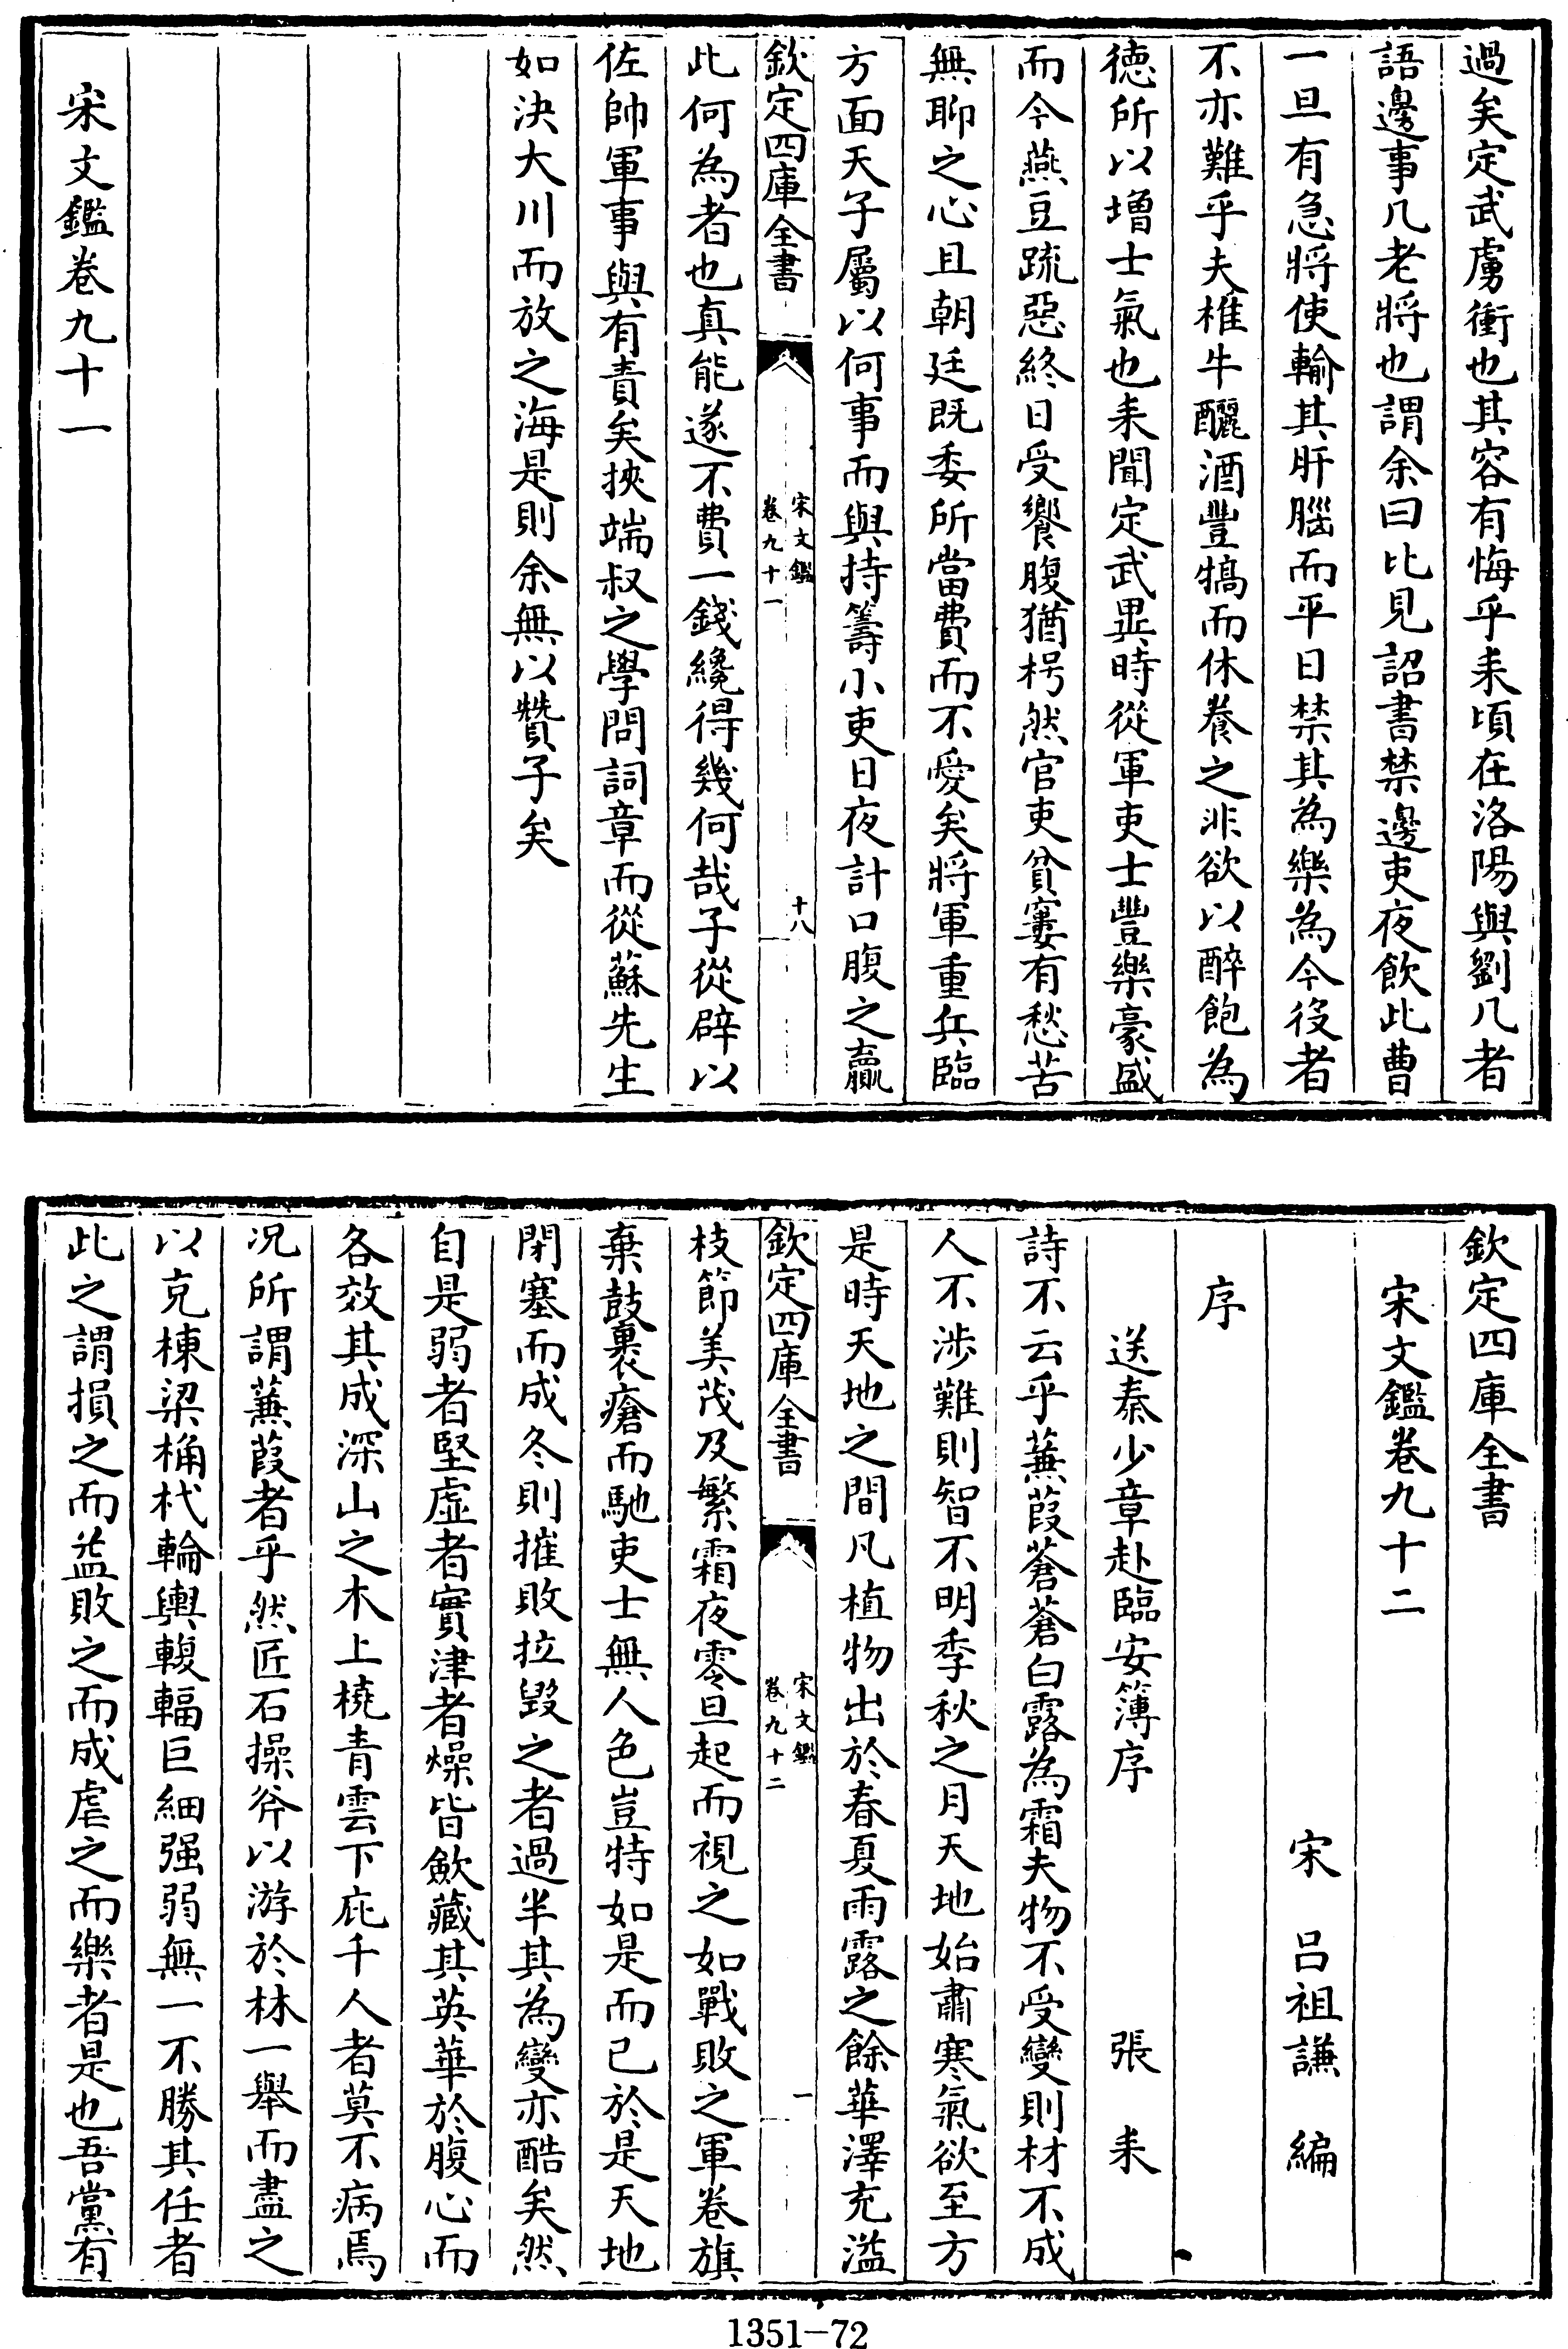 過矣定武虜衝也其容有悔乎耒頃在洛陽與劉几者
語邊事几老將也謂余曰比見詔書禁邊吏夜飲此曹
一旦有急將使輸其肝腦而平日禁其為樂為今役者
不亦難乎夫椎牛釃酒豐犒而休養之非欲以醉飽為
德所以增士氣也耒聞定武異時從軍吏士豐樂豪盛
而今燕豆疏惡終日受饗腹猶枵然官吏貧窶有愁苦
無聊之心且朝廷既委所當費而不愛矣將軍重兵臨
方面天子屬以何事而與持籌小吏日夜計口腹之贏
欽定四庫全書
宋文鑑
卷九十一
十八
此何為者也真能遂不費一錢纔得幾何哉子從辟以
佐帥軍事與有責矣挾端叔之學問詞章而從蘇先生
如決大川而放之海是則余無以贊子矣
宋文鑑卷九十一
欽定四庫全書
宋文鑑卷九十二
宋 呂祖謙 編
序
送秦少章赴臨安簿序 張耒
詩不云乎蒹葭蒼蒼白露為霜夫物不受變則材不成
人不涉難則智不明季秋之月天地始肅寒氣欲至方
是時天地之間凡植物出於春夏雨露之餘華澤充溢
欽定四庫全書
宋文鑑
卷九十二
一
枝節美茂及繁霜夜零旦起而視之如戰敗之軍卷旗
棄鼓裹瘡而馳吏士無人色豈特如是而已於是天地
閉塞而成冬則摧敗拉毀之者過半其為變亦酷矣然
自是弱者堅虛者實津者燥皆歛藏其英華於腹心而
各效其成深山之木上橈青雲下庇千人者莫不病焉
況所謂蒹葭者乎然匠石操斧以游於林一舉而盡之
以克棟梁桷杙輪輿輹輻巨細强弱無一不勝其任者
此之謂損之而益敗之而成虐之而樂者是也吾黨有
1351-72